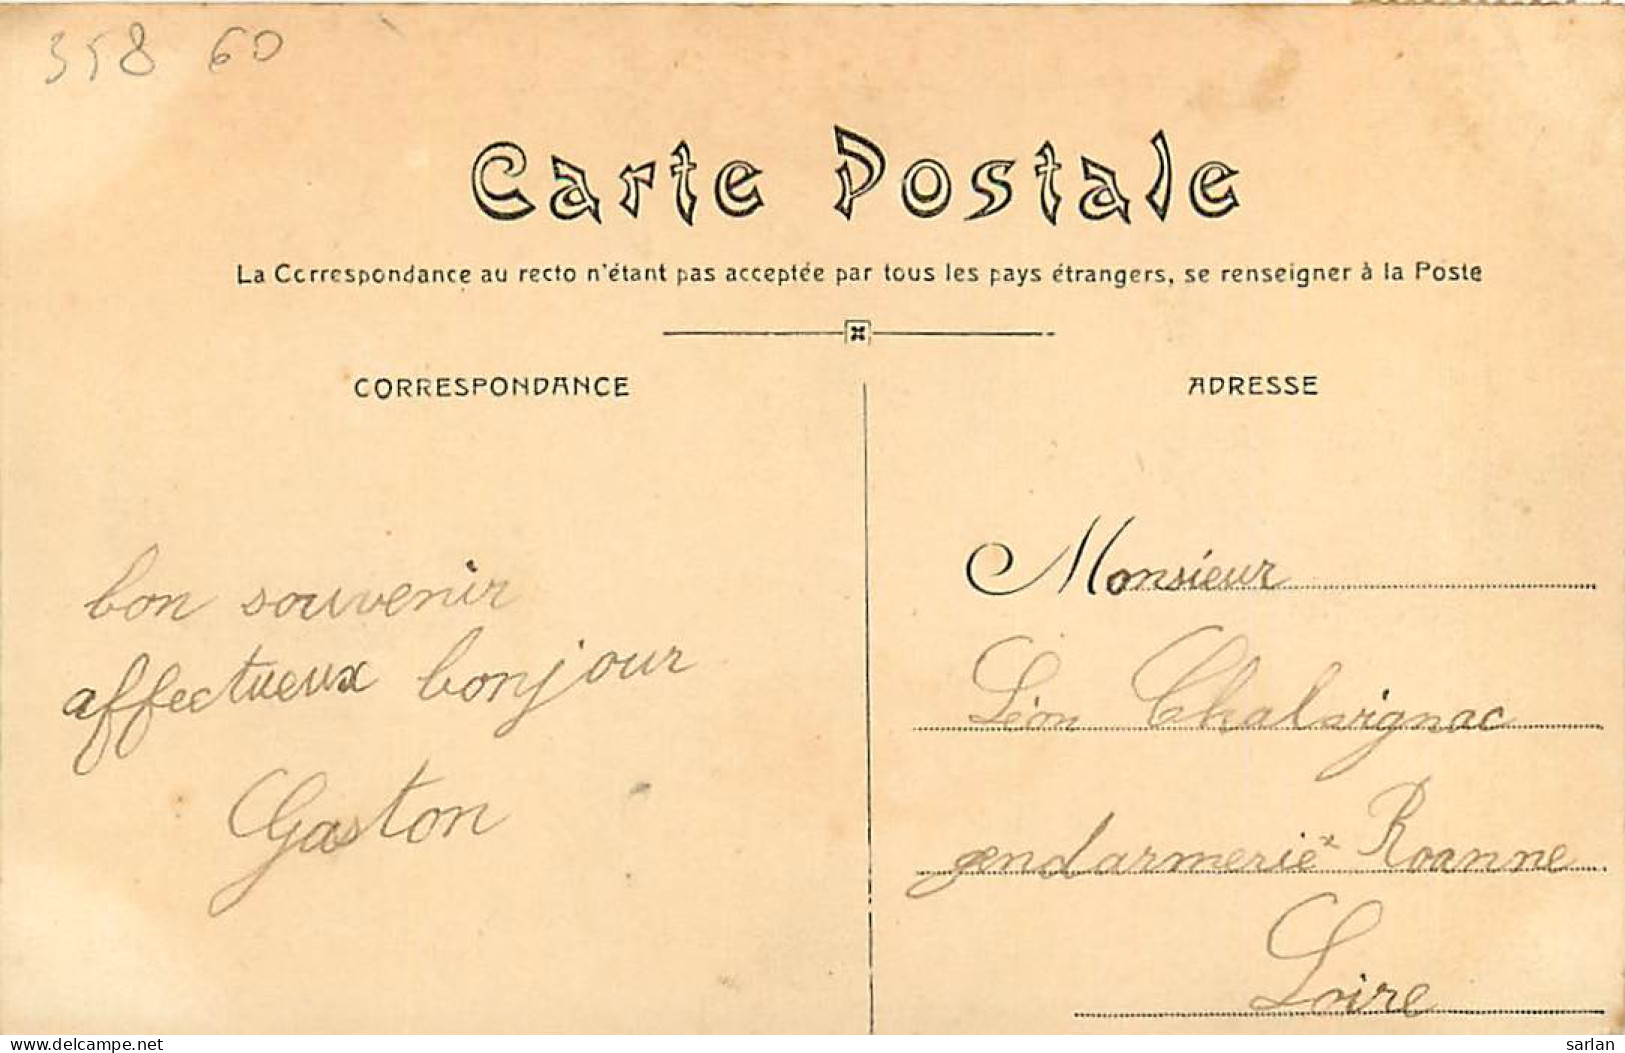 358 60
Carte Postale
La Correspondance au recto n'étant pas acceptée par tous les pays étrangers, se renseigner à la Poste
CORRESPONDANCE
bon souvenir
affectueux bonjour
Gaston
ADRESSE
Monsieur
Léon Chalvignac
gendarmerie Roanne
Loire
www.delcampe.net
sarlan